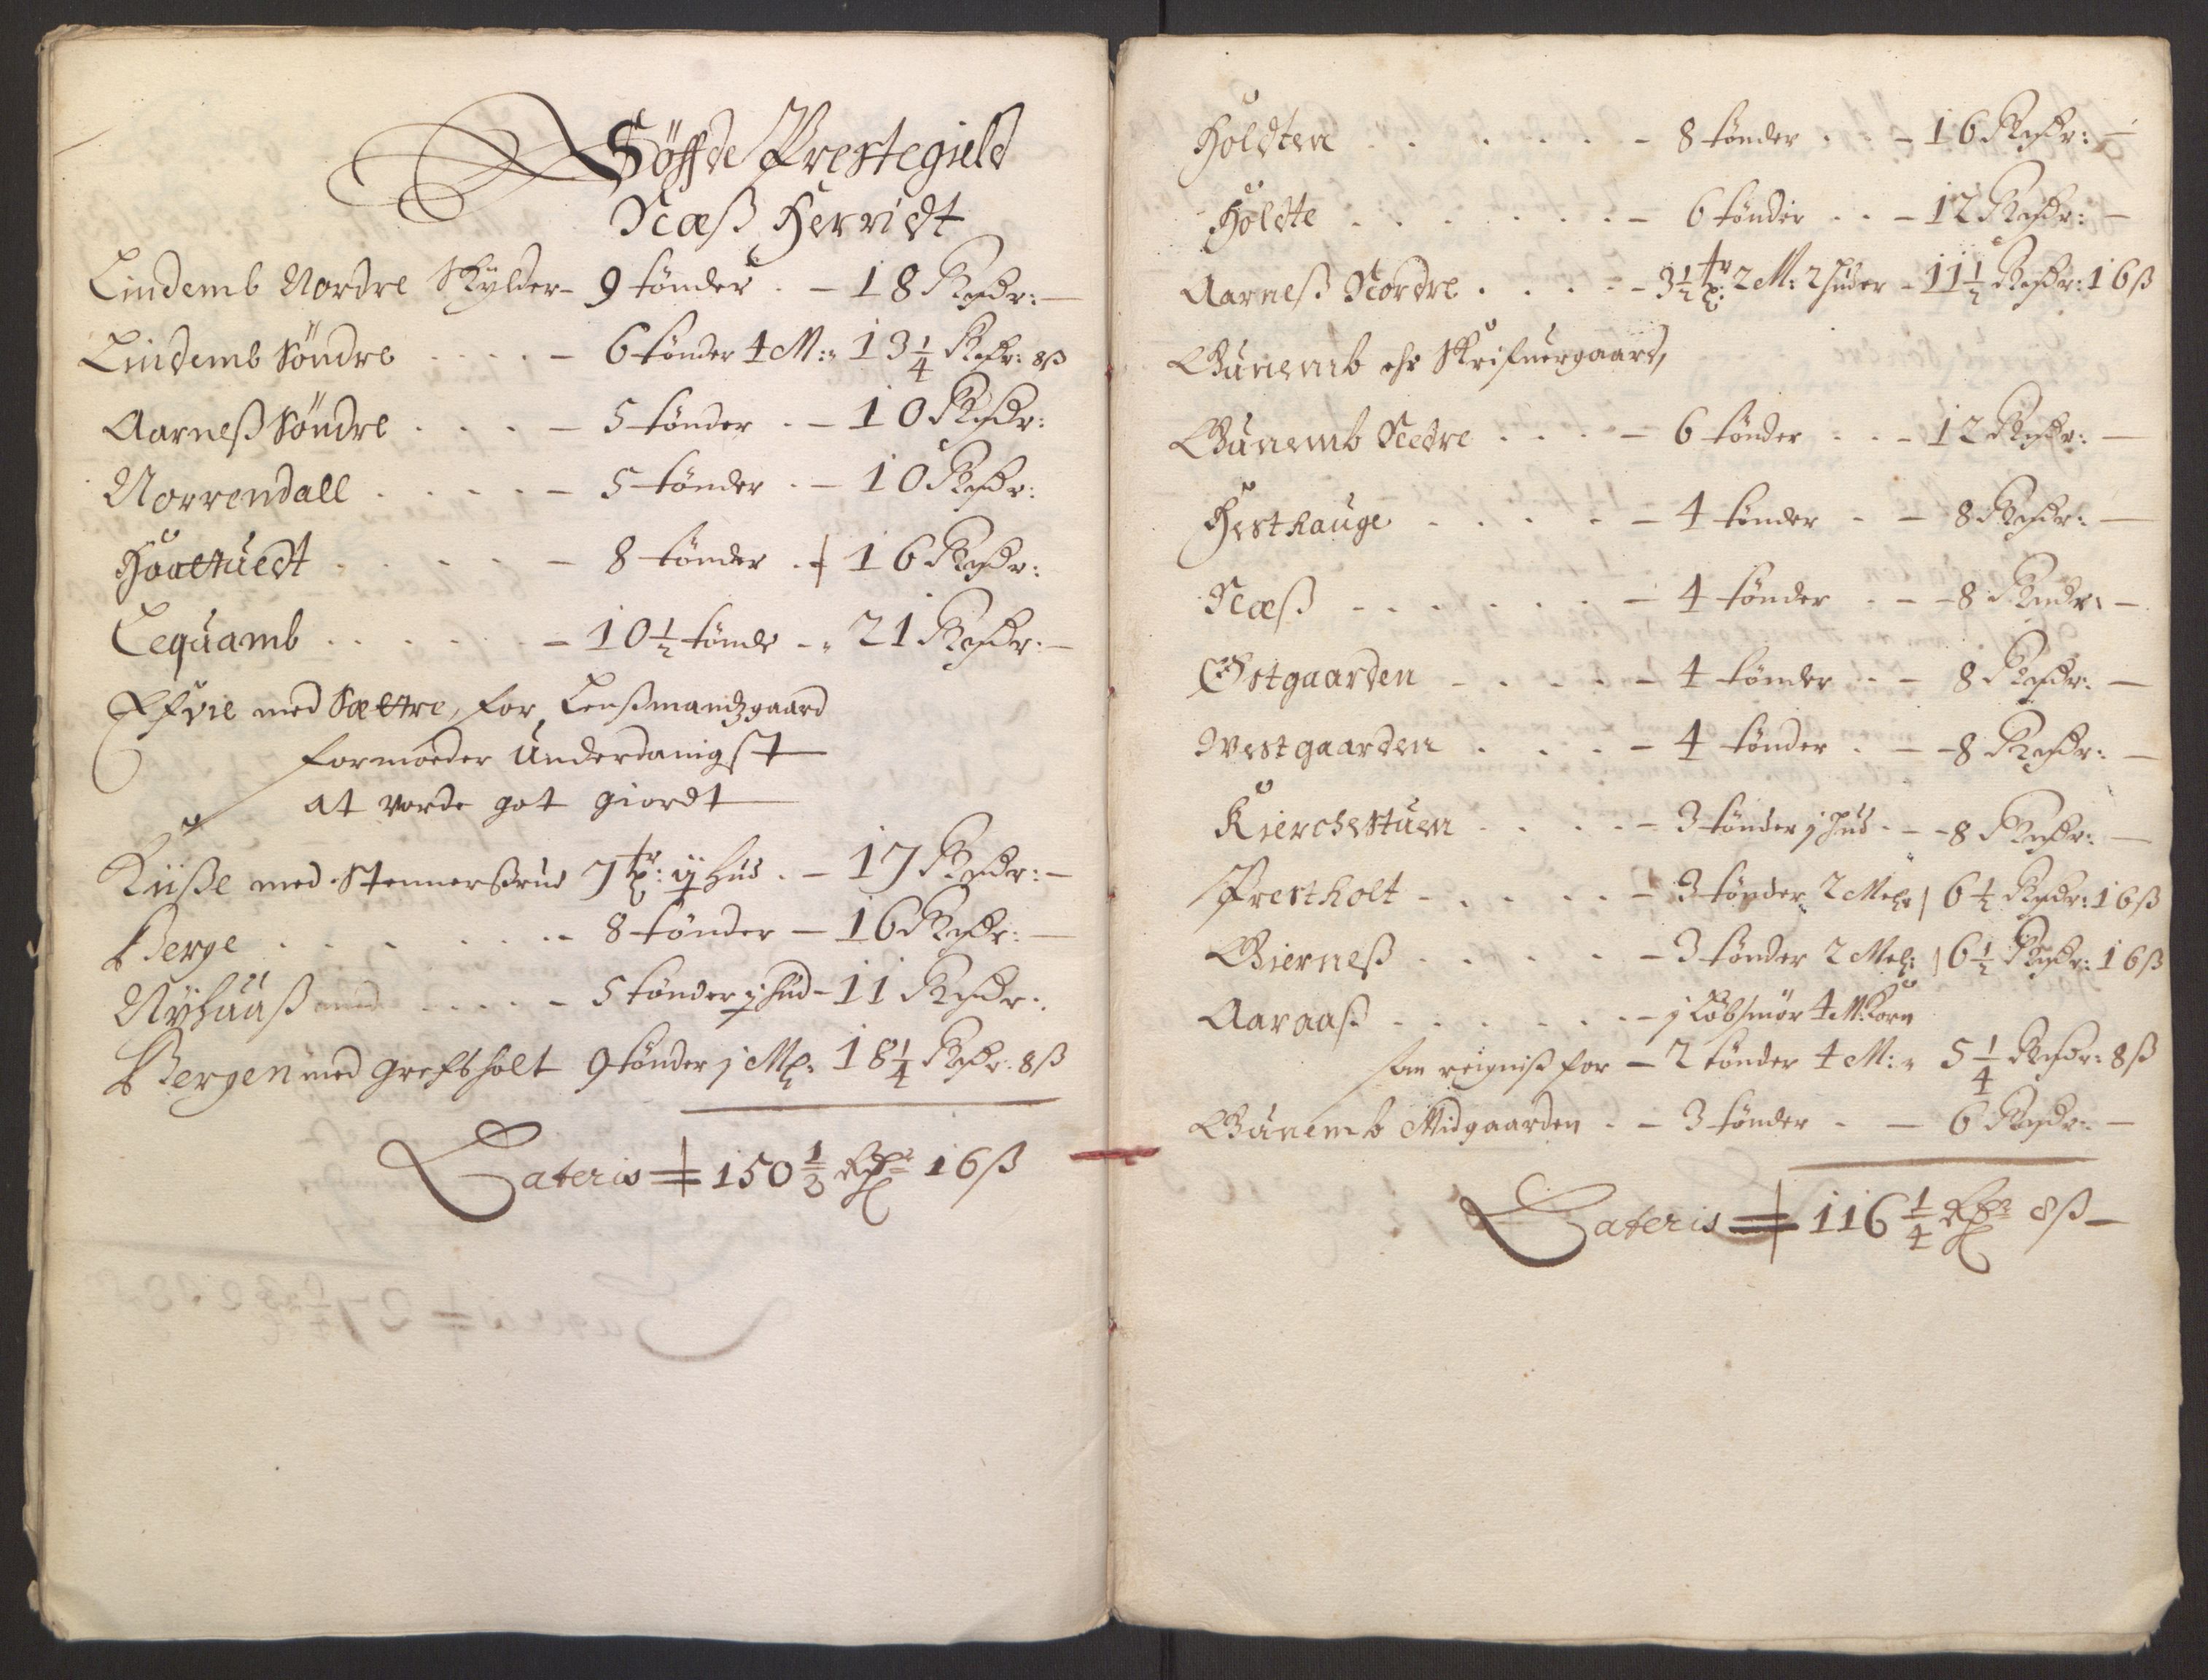 Söffde Prestegield
Næß Herridt
Lindemb Nordre Skylder - 9 tønder . - 18 Rixdr: -
Lindemb Söndre . . . . - 6 tønder 4 M: - 13 1/4 Rixdr: 8ß
Aarneß Söndre . . . . - 5 tønder . - 10 Rixdr:
Norrendall . . . . . - 5 tønder . - 10 Rixdr:
Haatuedt . . . . . - 8 tønder . - 16 Rixdr:
Lequamb . . . . . . - 10 1/2 tønde - - 21 Rixdr: -
Efvie med Sættre, for Lenßmandzgaard
formoeder Underdanigst
at vorde got giordt
Küße med Stennerßrud 7 tr: ij Hud . - 17 Rixdr: -
Berge . . . . . . - 8 tønder - 16 Rixdr: -
Nÿhuuß . . . . - 5 tønder j hud - 11 Rixdr:
Bergen med Grefsholt 9 tønder j Ml: 18 1/4 Rixdr: 8ß
Lateris = 150 1/2 Rdr 16ß
Holdten . . . . . . - 8 tønder . . - 16 Rixdr: -
Holdte . . . . . . . - 6 tønder . . - 12 Rixdr: -
Aarneß Nordre . . . . - 3 1/2 tr: 2 M: 2 huder - 11 1/2 Rixdr: 16ß
Gunemb ehr Skrifuergaard,
Gunemb Nedre . . . . - 6 tønder . . - 12 Rixdr: -
Hesthauge . . . . . - 4 tønder . - 8 Rixdr: -
Næß - . . . . . . - 4 tønder . - - 8 Rixdr: -
Østgaarden - . . . . - 4 tønder . . - 8 Rixdr: -
Westgaarden . . . . - 4 tønder . - - 8 Rixdr: -
Kierchestuen . . . . - 3 tønder j hud . - - 8 Rixdr: -
Prestholt - . . . . . - 3 tønder 2 Mel: 6 1/2 Rixdr: 16ß
Gierneß . . . . . - 3 tønder 2 Mel: 6 1/2 Rixdr: 16ß
Aaraaß - . . . . . - j Løb smør 4 M: Korn
som reigniß for - 2 tønder 4 M: - 5 1/4 Rixdr: 8ß
Gunemb Midgaarden . - 3 tønder . - 6 Rixdr: -
Lateris = 116 1/4 Rdr 8ß -